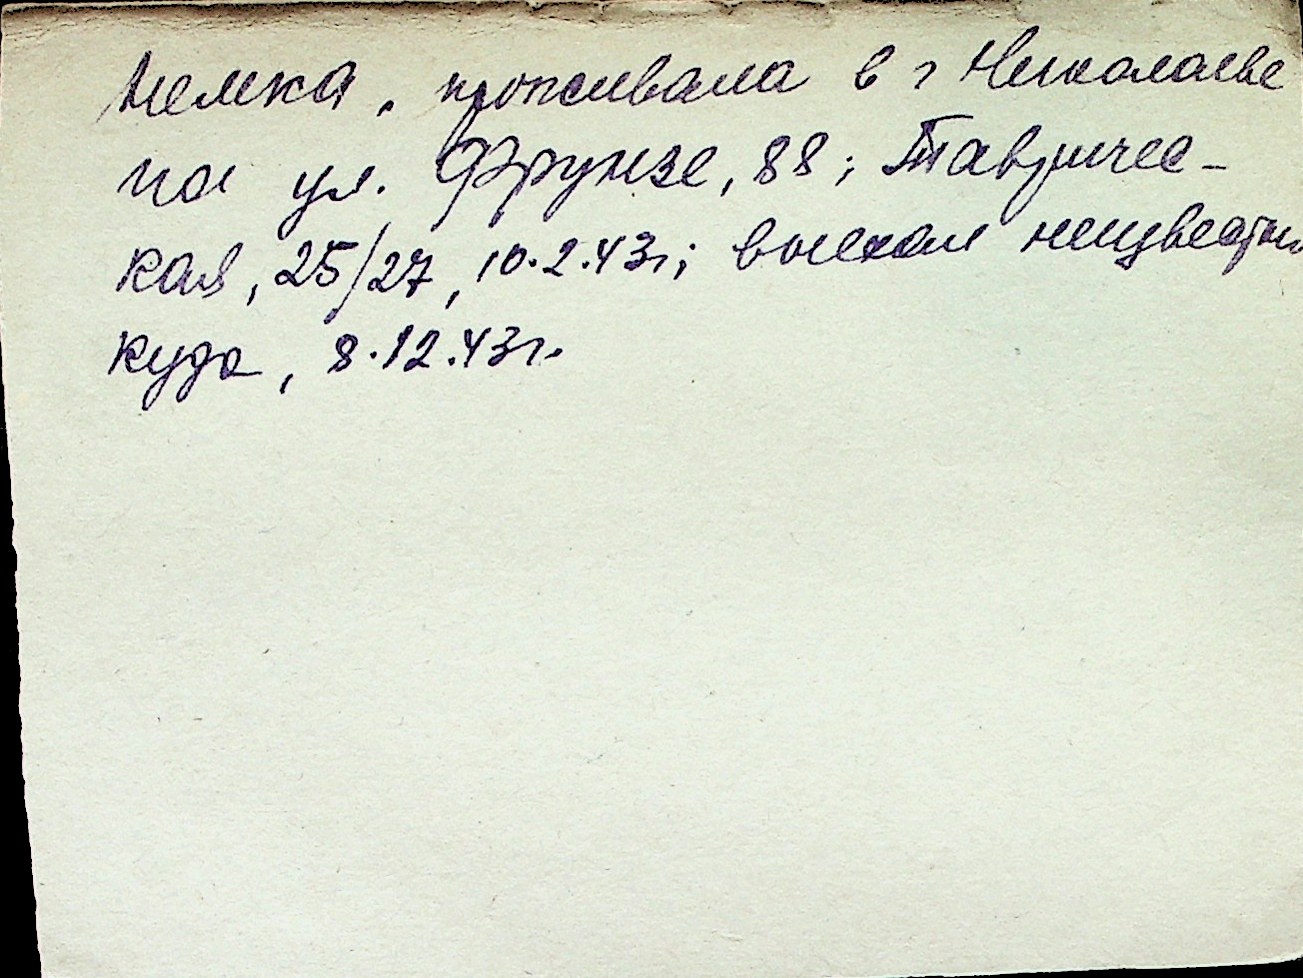 немка, проживала в г Николаеве
по ул. Фрунзе, 88; Тавричес-
кая, 25/27, 10.2.43г; выехала неизвестно
куда, 8.12.43г.